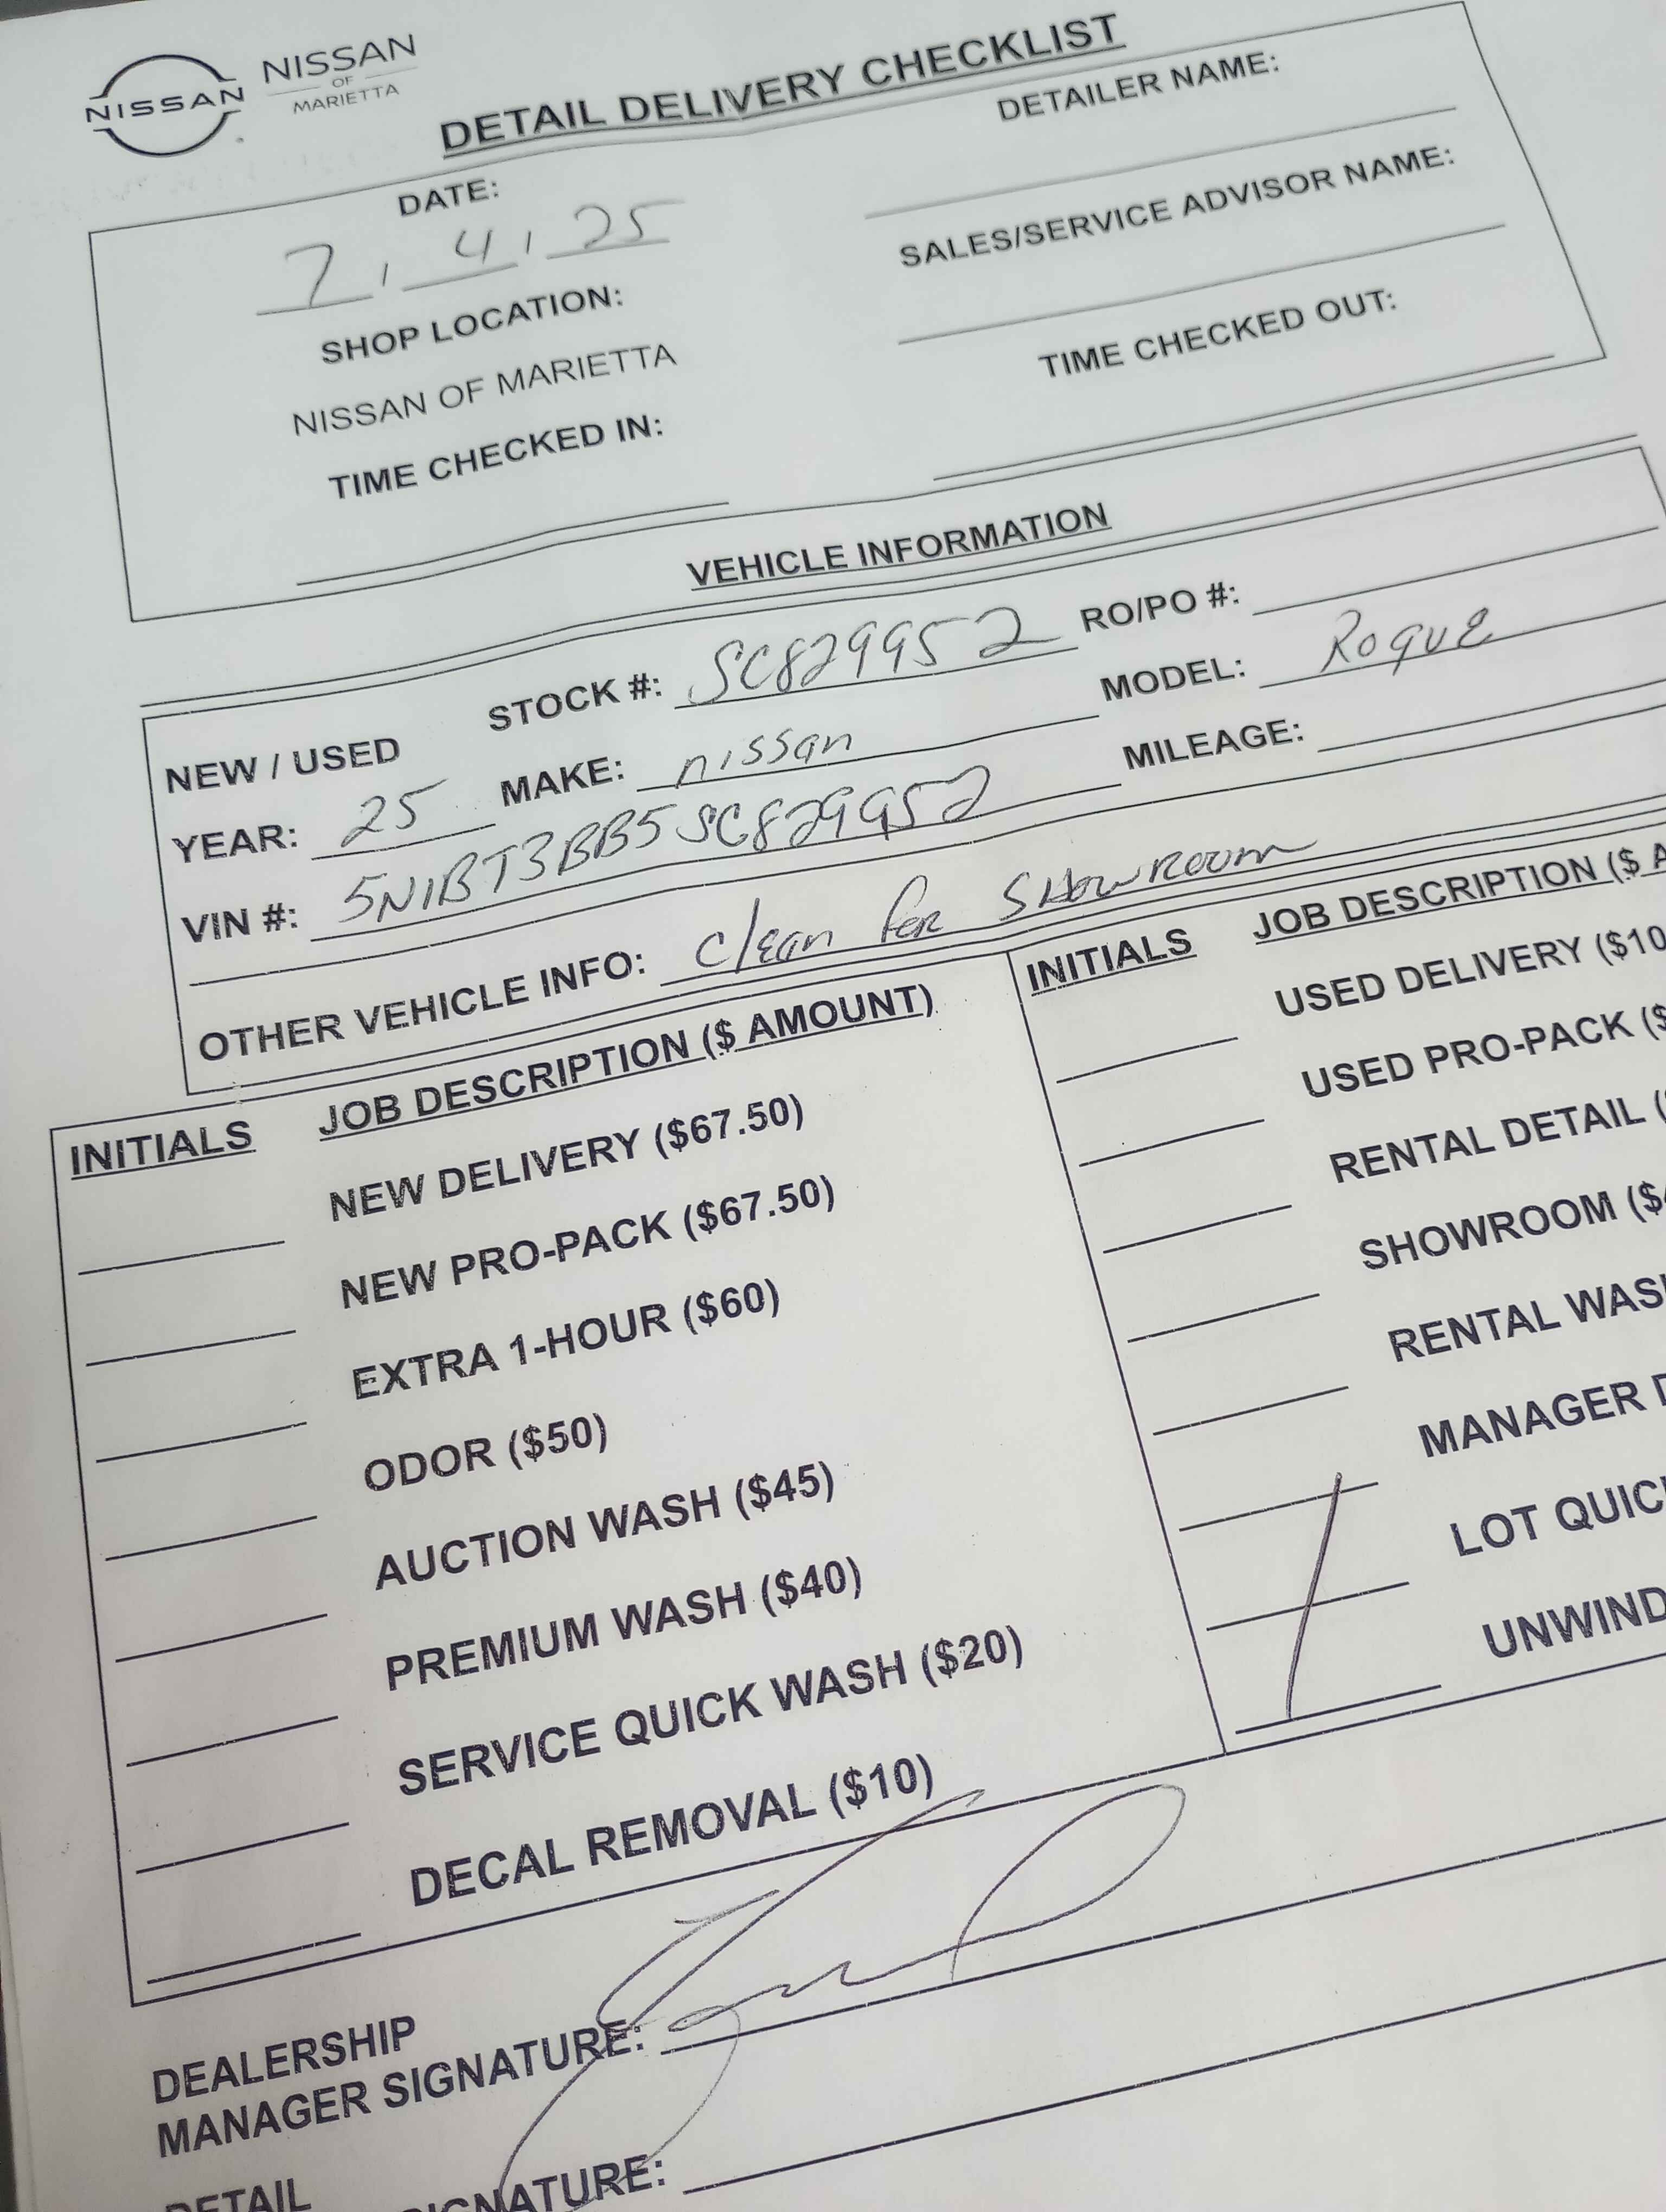 NISSAN
NISSAN
OF
MARIETTA
DETAIL DELIVERY CHECKLIST
DATE:
7, 4, 25
DETAILER NAME:
SHOP LOCATION:
NISSAN OF MARIETTA
SALES/SERVICE ADVISOR NAME:
TIME CHECKED IN:
TIME CHECKED OUT:
VEHICLE INFORMATION
NEW / USED STOCK #: SC829952 RO/PO #:
YEAR: 25 MAKE: nissan MODEL: Rogue
VIN #: 5N1BT3BB5SC829952 MILEAGE:
OTHER VEHICLE INFO: Clean for Showroom
INITIALS JOB DESCRIPTION ($ AMOUNT)
NEW DELIVERY ($67.50)
NEW PRO-PACK ($67.50)
EXTRA 1-HOUR ($60)
ODOR ($50)
AUCTION WASH ($45)
PREMIUM WASH ($40)
SERVICE QUICK WASH ($20)
DECAL REMOVAL ($10)
INITIALS JOB DESCRIPTION ($ A
USED DELIVERY ($10
USED PRO-PACK ($
RENTAL DETAIL (
SHOWROOM ($
RENTAL WAS
MANAGER
LOT QUIC
UNWIND
DEALERSHIP
MANAGER SIGNATURE:
DETAIL
SIGNATURE: